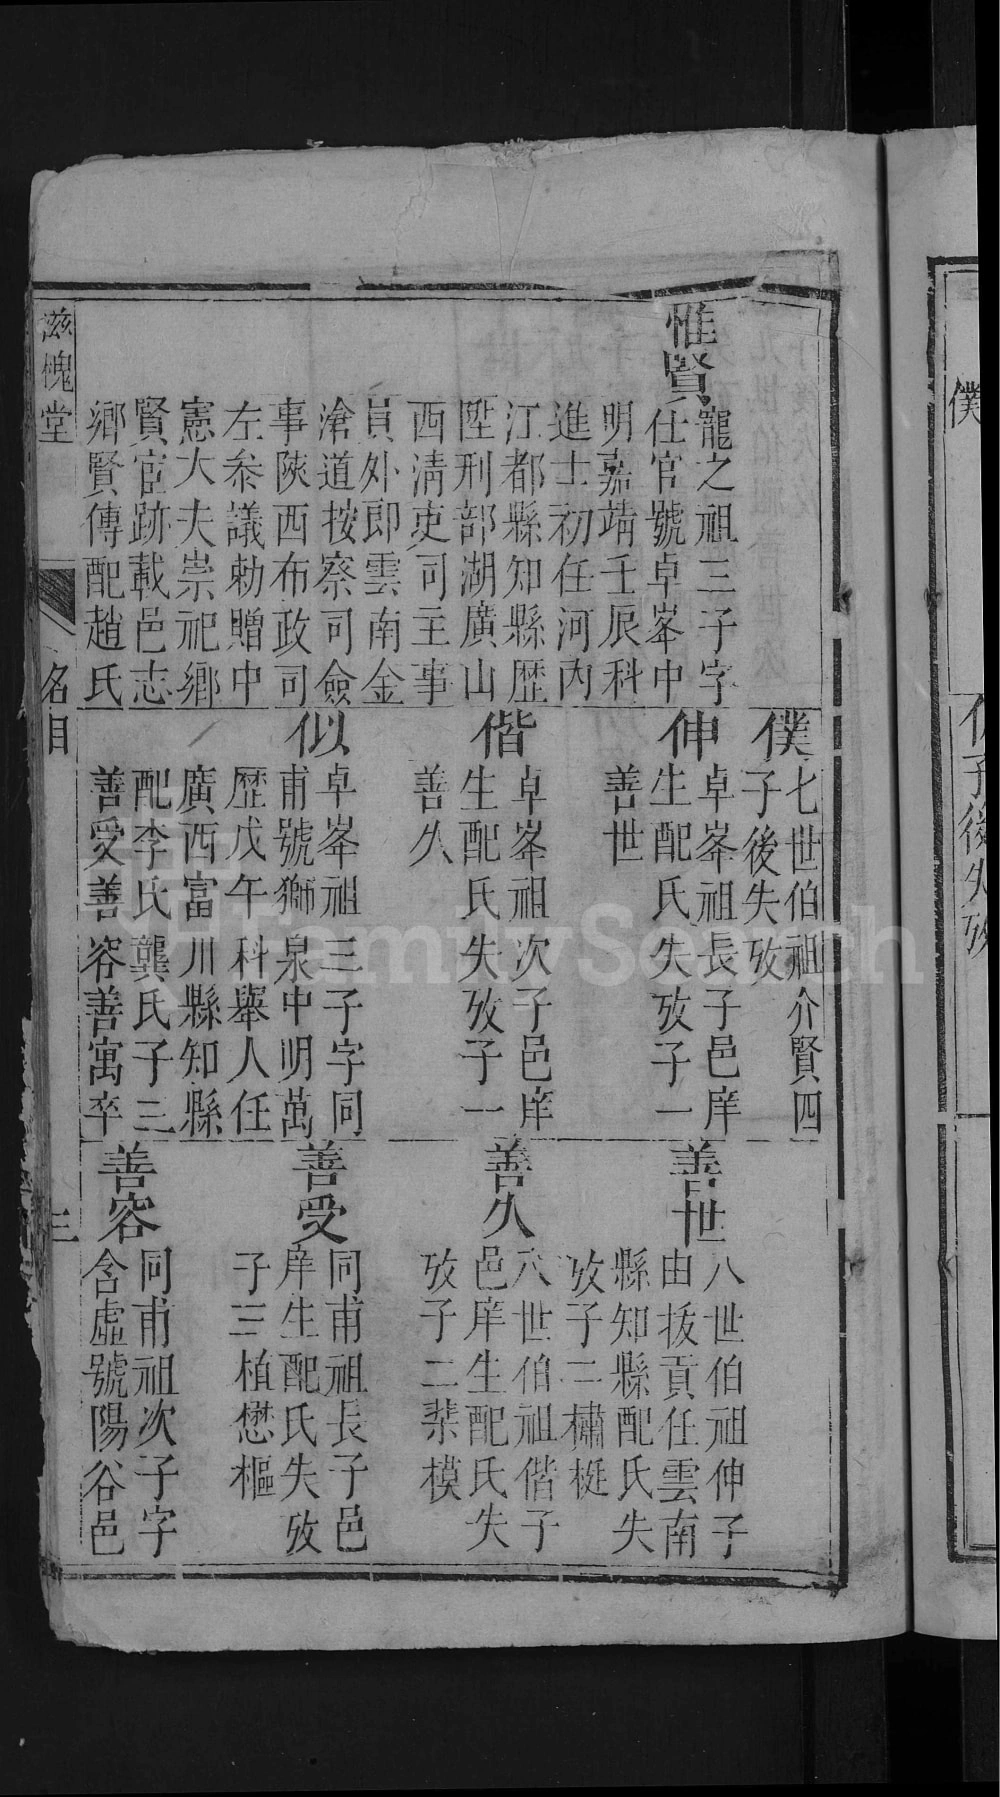 惟賢
寵之祖三子字
仕官號卓峯中
明嘉靖壬辰科
進士初任河內
江都縣知縣歷
陞刑部湖廣山
西淸吏司主事
員外郎雲南金
滄道按察司僉
事陝西布政司
左叅議勅贈中
憲大夫崇祀鄉
賢宦跡載邑志
鄉賢傳配趙氏
僕
七世伯祖介賢四
子後失攷
伸
卓峯祖長子邑庠
生配氏失攷子一
善世
偕
卓峯祖次子邑庠
生配氏失攷子一
善久
似
卓峯祖三子字同
甫號獅泉中明萬
歷戊午科舉人任
廣西富川縣知縣
配李氏龔氏子三
善受善容善寓卒
善世
八世伯祖伸子
由拔貢任雲南
縣知縣配氏失
攷子二橚梃
善久
八世伯祖偕子
邑庠生配氏失
攷子二棐模
善受
同甫祖長子邑
庠生配氏失攷
子三植懋樞
善容
同甫祖次子字
含虛號陽谷邑
滋槐堂
名目
三
僕
子後失攷
FamilySearch